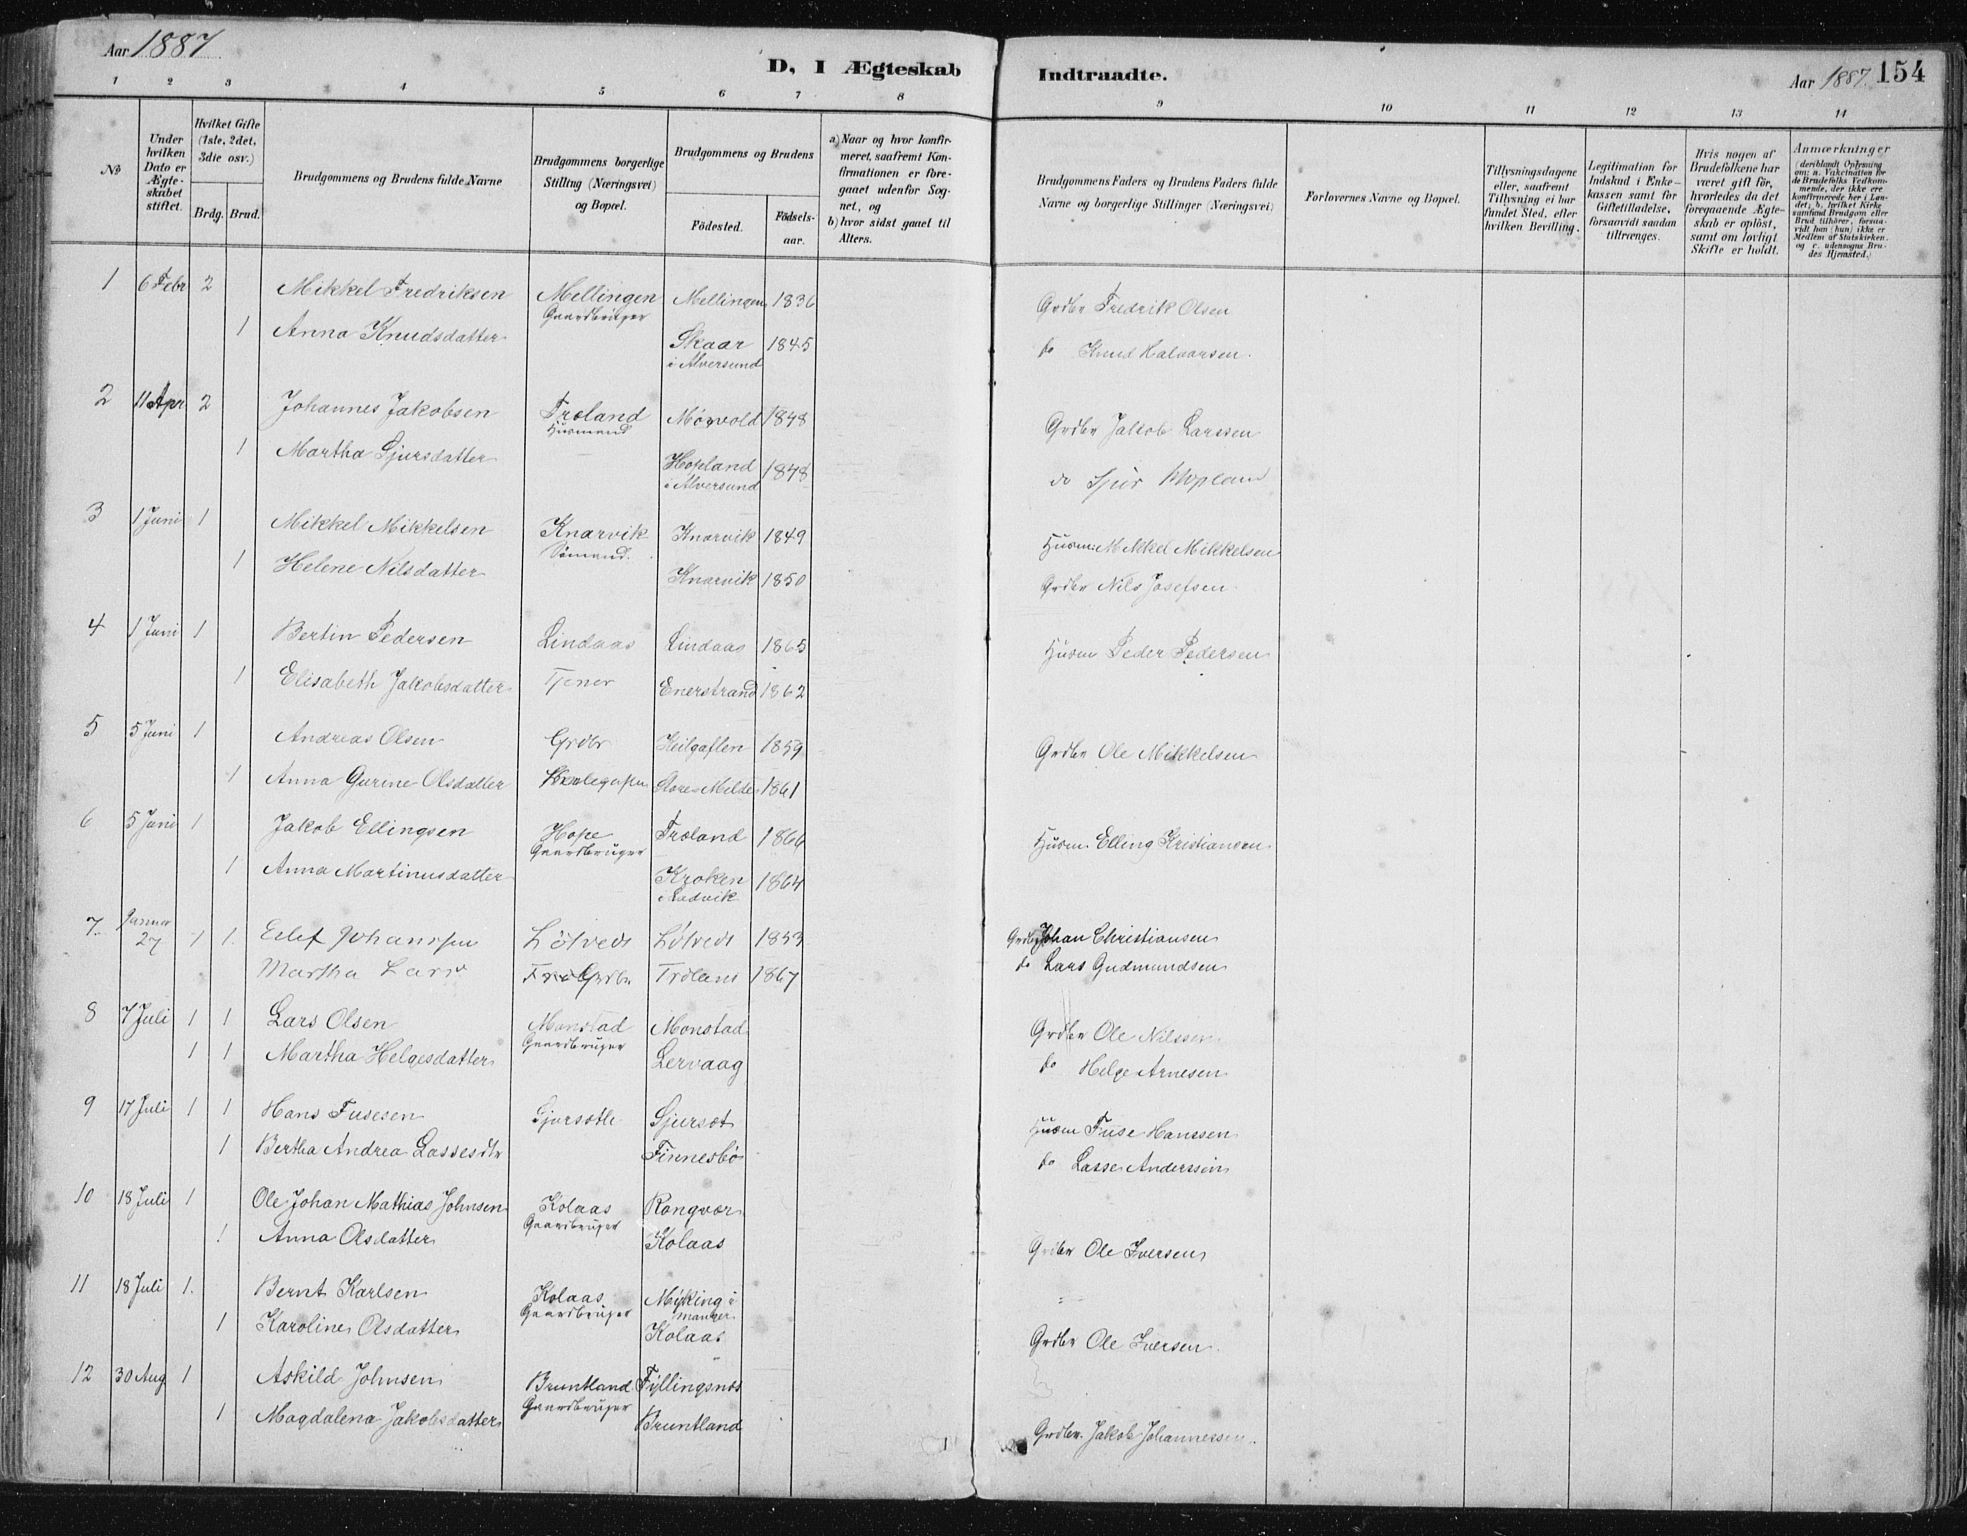 Aar 1887
D, I Ægteskab
Indtraadte.
Aar 1887. 154
1 2 3 4 5 6 7 8 9 10 11 12 13 14
No
Under hvilken Dato er Ægte-skabet stiftet.
Hvilket Gifte (1ste, 2det, 3die osv.)
Brdg. Brud.
Brudgommens og Brudens fulde Navne
Brudgommens borgerlige Stilling (Næringsvei) og Bopæl.
Brudgommens og Brudens
Födested.
Födsels-aar.
a) Naar og hvor konfir-meret, saafremt Kon-firmationen er fore-gaaet udenfor Sog-net, og
b) hvor sidst gaaet til Alters.
Brudgommens Faders og Brudens Faders fulde Navne og borgerlige Stillinger (Næringsvei)
Forlovernes Navne og Bopæl.
Tillysningsdagene eller, saafremt Tillysning ei har fundet Sted, efter hvilken Bevilling.
Legitimation for Indskud i Enke-kassen samt for Giftetilladelse, forsaavidt saadan tiltrænges.
Hvis nogen af Brudefolkene har været gift för, hvorledes da det foregaaende Ægte-skab er oplöst, samt om lovligt Skifte er holdt.
Anmærkninger
(deriblandt Oplysning om: a. Vakcination for de Brudefolks Vedkom-mende, der ikke ere konfirmerede her i Lan-det; b. hvilket Kirke-samfund Brudgom eller Brud tilhörer, forsaa-vidt han (hun) ikke er Medlem af Statskirken, og c. udensogns Bru-des Hjemsted.)
1 6 Febr 2 Mikkel Fredriksen Mellingen Mellingen 1836 Grdbr Fredrik Olsen
Gaardbruger
1 Anna Knudsdatter Skaar 1845 do Knud Halvorsen.
i Alversund
2 11 Apr 2 Johannes Jakobsen Træland Mørvold 1848 Grdbr Jakob Larssen
Husmand
1 Martha Sjursdatter Hopland 1848 do Sjur Hopland
i Alversund
3 1 Juni 1 Mikkel Mikkelsen Knarvik Knarvik 1849 Husm: Mikkel Mikkelsen
Sømand.
1 Helene Nilsdatter Knarvik 1850 Grdbr Nils Josefsen.
4 1 Juni 1 Bertin Pedersen Lindaas Lindaas 1865 Husm Peder Pedersen
1 Elisabeth Jakobsdatter Tjener Enerstrand 1862
5 5 Juni 1 Andreas Olsen Grdbr 1859 Grdbr Ole Mikkelsen
1 Anna Gurine Olsdatter 1861
6 5 Juni 1 Jakob Ellingsen Hope Træland 1866 Husm. Elling Kristiansen.
Gaardbruger
1 Anna Martinusdatter Kroken 1864
i Ladvik
7. Januar 27 1 1. Johanssen Lötveds Lötveds Grdbr Johan Christiansen
Martha Lars Grdbr 1867 do Lars Gudmundsen
8 7 Juli 1 1 Lars Olsen Monstad Monstad Grdbr Ole Nilssen
Gaardbruger
1 1 Martha Helgesdatter Lervaag do Helge Arnesen
9 17 Juli 1 1 Hans Fusesen Sjursæt Husm Fuse Hanssen
1 Bertha Andrea Lassesdtr Finnesbö do Lasse Anderssen
10 18 Juli 1 Ole Johan Mathias Johnsen Kolaas Rongvær
Gaardbruger
1 Anna Olsdatter Kolaas Grdbr Ole Iversen
11 18 Juli 1. Bernt Karlsen Kolaas Myking i
Gaardbruger Manger
1 Karoline Olsdatter Kolaas Grdbr Ole Iversen.
12 30 Aug 1 Askild Johnsen Bruntland Fyllingsnæs
Gaardbruger
1 Magdalena Jakobsdatter Bruntland Grdbr. Jakob Johannessen.